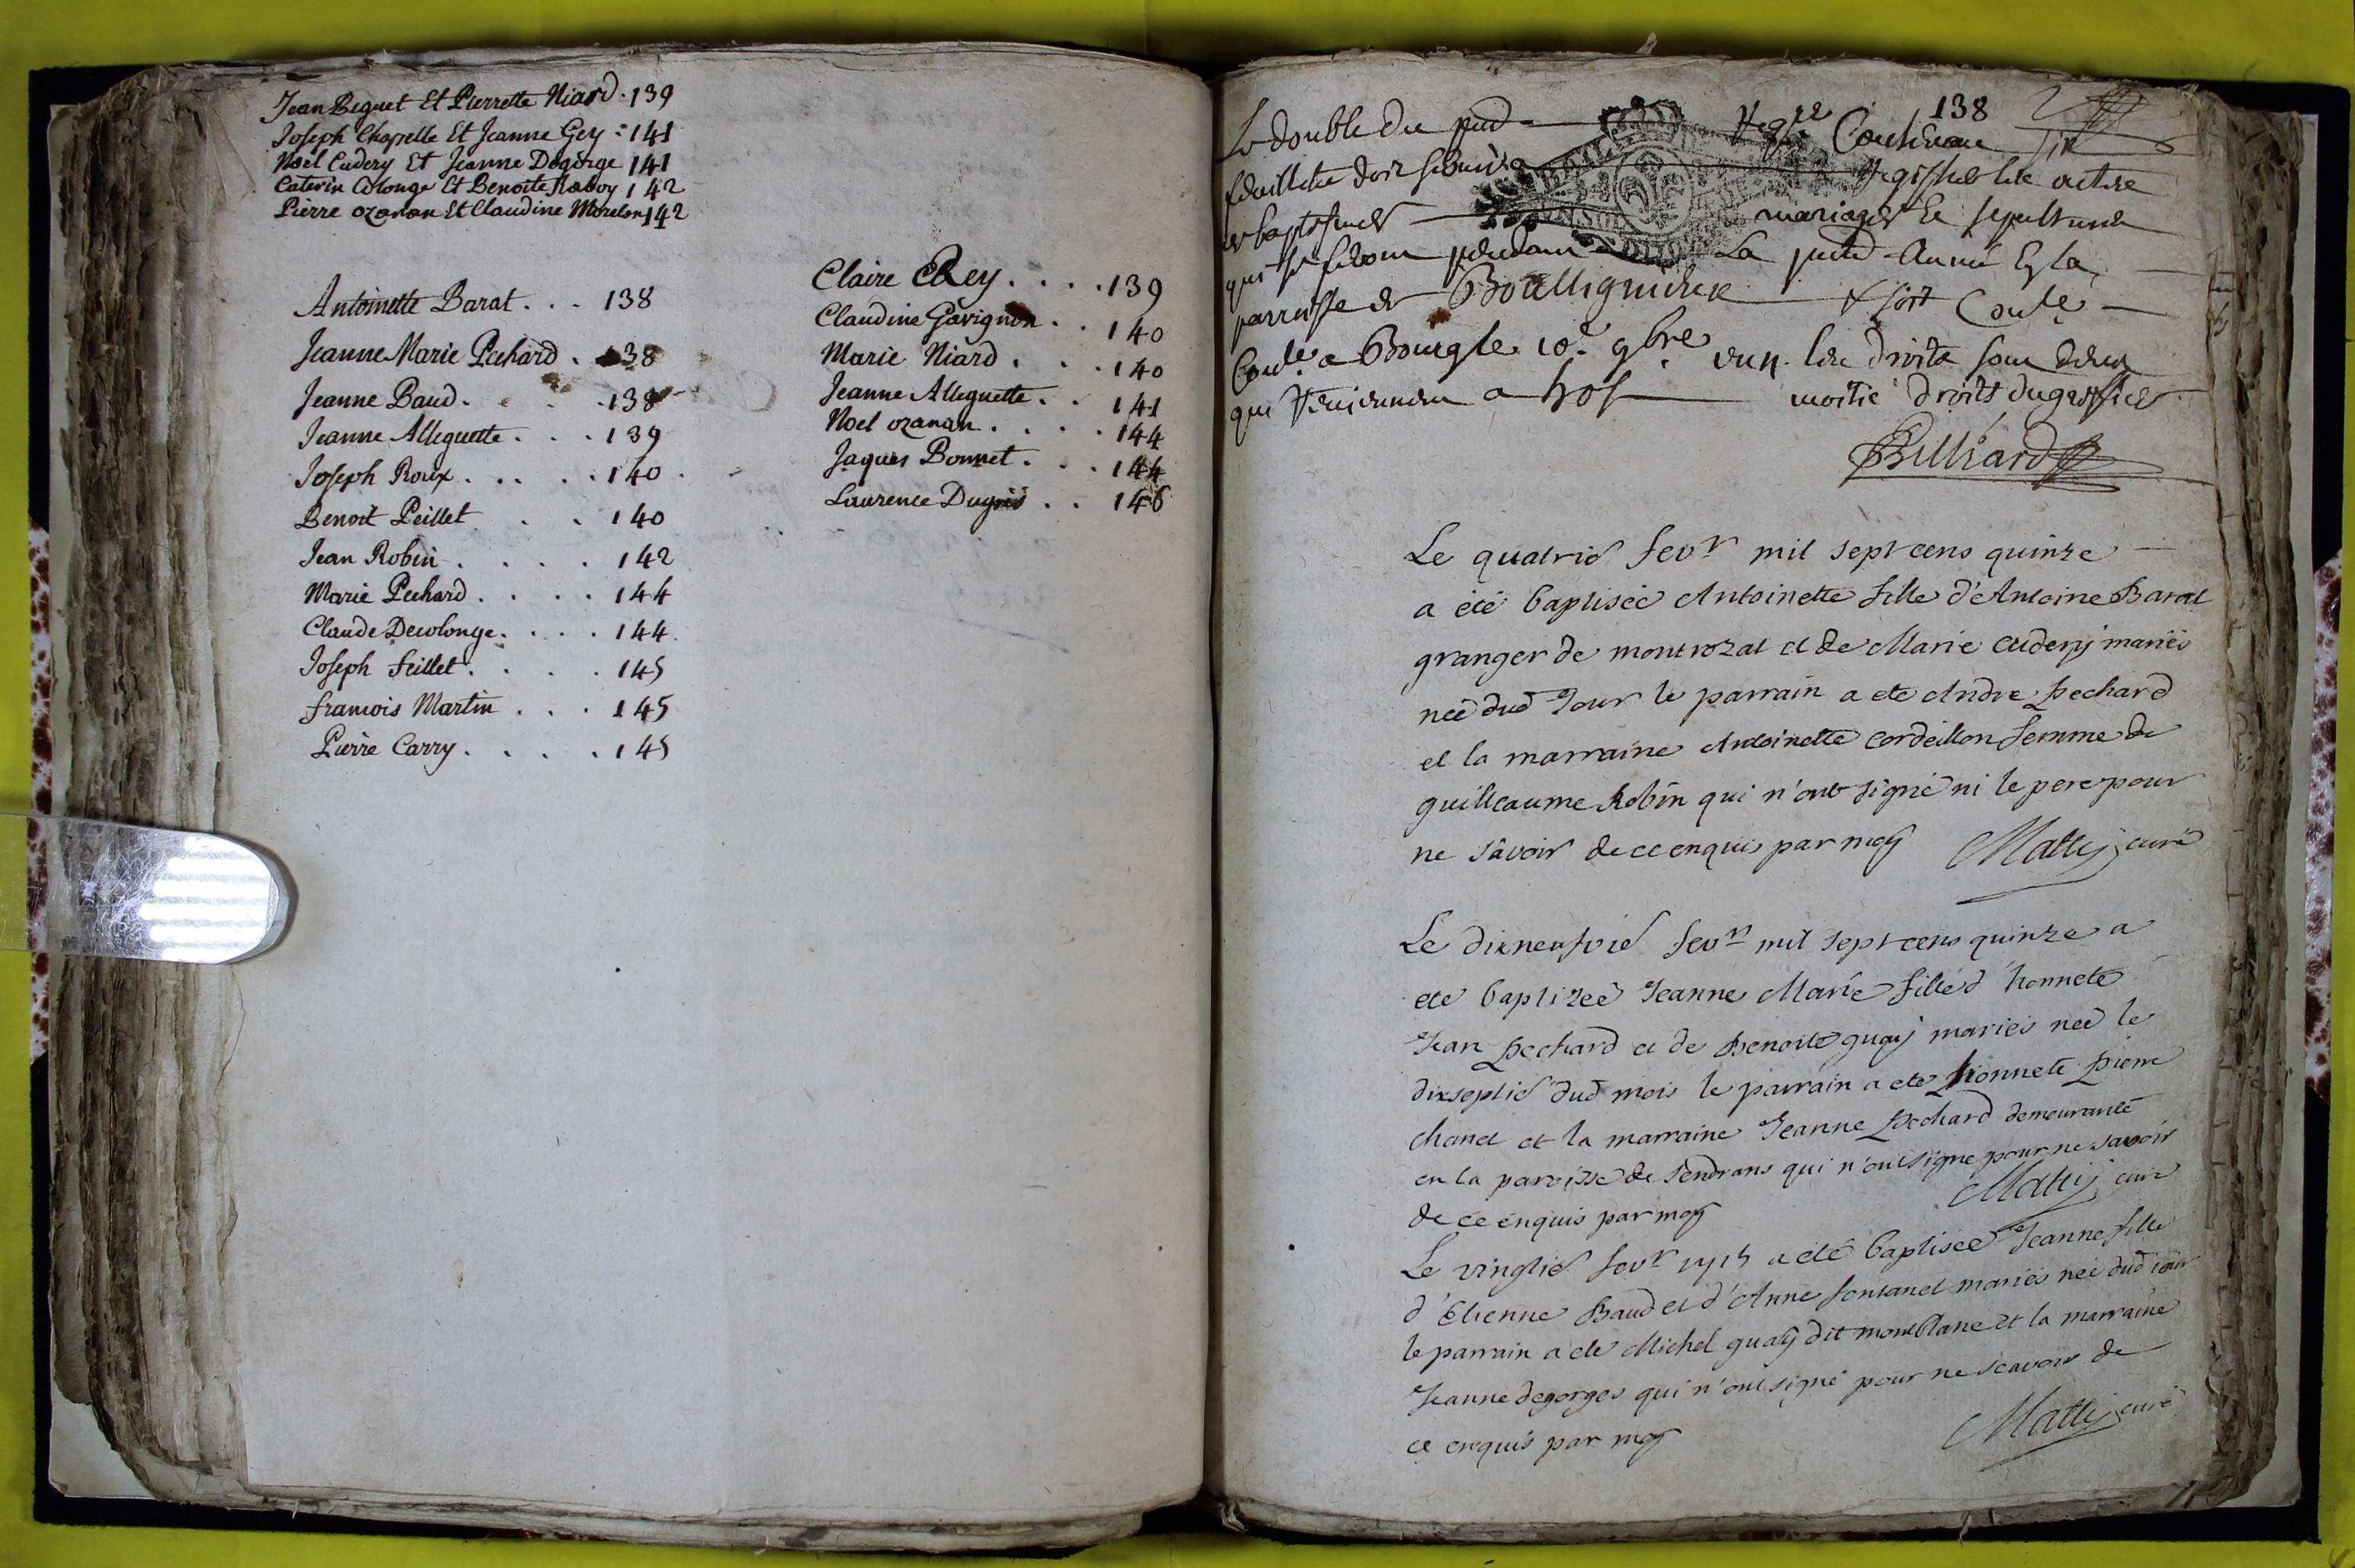 Jean Beguet Et Pierrette Niard . 139
Joseph Chapelle Et Jeanne Gey - 141
Noel Cudery Et Jeanne Degorge 141
Caterin Colonge Et Benoite Raboy 142
Pierre ozanan Et Claudine Morelon 142
Antoinette Barat . . . 138
Jeanne Marie Pechard . 138
Jeanne Baud . . . 138
Jeanne Alleguette . . . 139
Joseph Roux . . . . . 140
Benoit Peillet . . 140
Jean Robin . . . . 142
Marie Pechard . . . . 144
Claude Decolonge . . . . 144
Joseph feillet . . . . 145
francois Martin . . . 145
Pierre Carry . . . . 145
Claire Rey . . . . 139
Claudine Gavignon . . 140
Marie Niard . . . 140
Jeanne Alleguette . . 141
Noel ozanan . . . . 144
Jaques Bonnet . . . 144
Laurence Dugris . . 146
138
Le double du pnt Regre Contenant six
feuillets doit servir Registres les actes
de baptesmes mariages Et sepultures
qui se feront pendant La pnte Année En la
parroisse de Boulligneux
Coté a Bourg le 10e 9bre les droits sont
qui a moitié droits du greffier
Billiard
Le quatrie fevr mil sept cens quinze
a été baptisée Antoinette fille d'Antoine Barat
granger de montrozat et de Marie cudery mariés
neé dud Jour le parrain a ete Andre Pechard
et la marraine Antoinette cordeillon femme de
guilleaume Robin qui n'ont signé ni le pere pour
ne sâvoir de ce enquis par moy Matty curé
Le dixneufvie fevr mil sept cens quinze a
ete baptizeé Jeanne Marie fille d'honnete
Jean Pechard et de Benoite guay mariés neé le
dixseptie dud mois le parrain a ete honnete Pierre
chanel et la marraine Jeanne Pechard demeurante
en la paroisse de sendrans qui n'ont signe pour ne savoir
de ce enquis par moy Matty curé
Le vingtie fevr 1715 a été baptisée Jeanne fille
d'Etienne Baud et d'Anne fontanel mariés neé dud iour
le parrain a ete Michel guay dit montblanc et la marraine
Jeanne degorges qui n'ont signé pour ne scavoir de
ce enquis par moy Matty curé